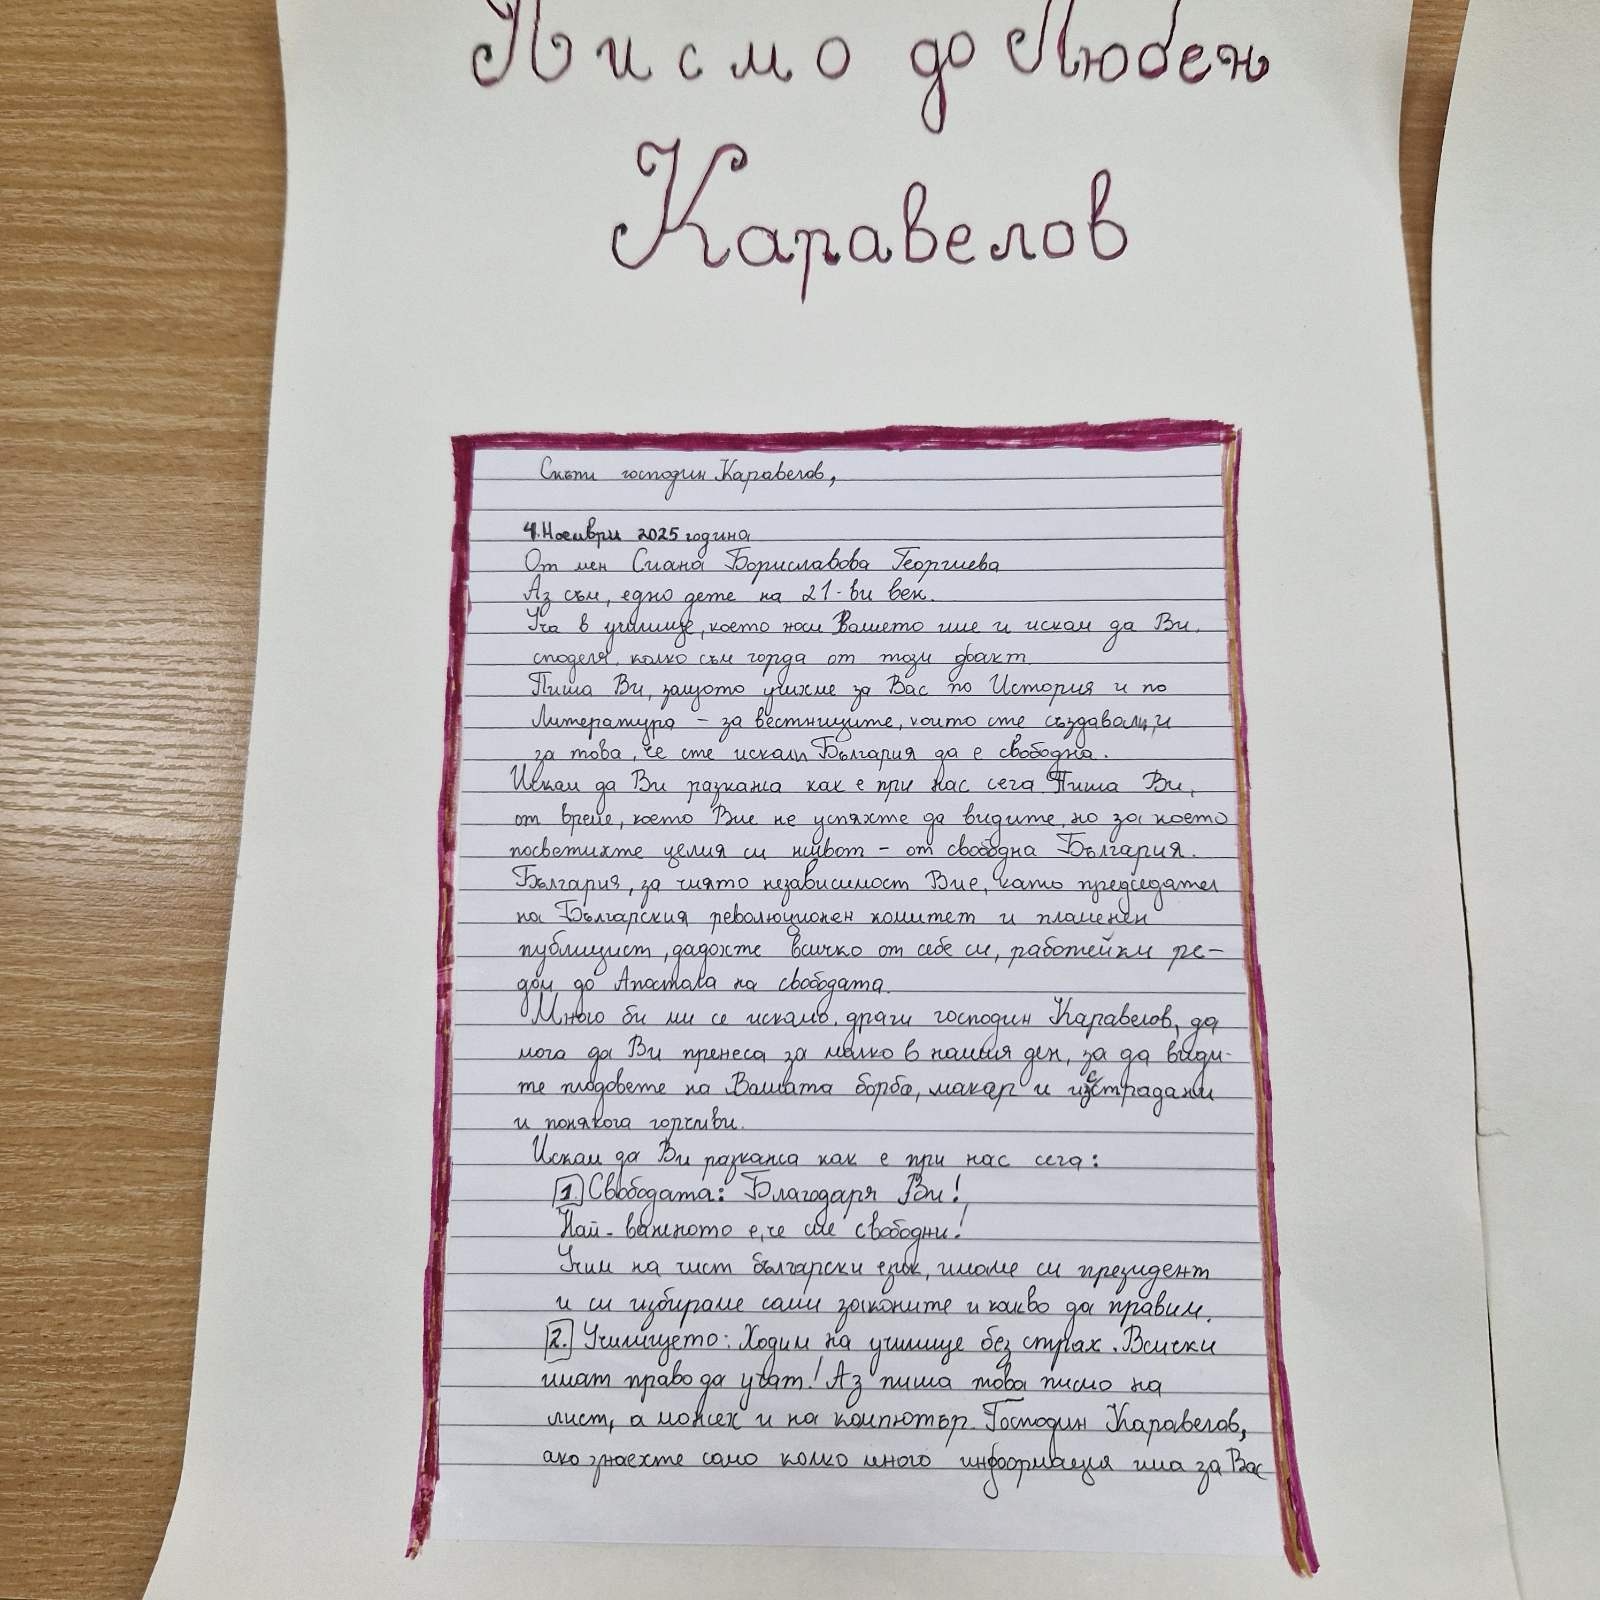 Писмо до Любен
Каравелов
Скъпи господин Каравелов,
4.Ноември 2025 година
От мен Сиана Бориславова Георгиева
Аз съм, едно дете на 21-ви век.
Уча в училище, което носи Вашето име и искам да Ви
споделя, колко съм горда от този факт.
Пиша Ви, защото учихме за Вас по История и по
Литература – за вестниците, които сте създавали, и
за това, че сте искали България да е свободна.
Искам да Ви разкажа как е при нас сега. Пиша Ви,
от време, което Вие не успяхте да видите, но за което
посветихте целия си живот – от свободна България.
България, за чиято независимост Вие, като председател
на Българския революционен комитет и пламенен
публицист, дадохте всичко от себе си, работейки ре-
дом до Апостола на свободата.
Много би ми се искало, драги господин Каравелов, да
мога да Ви пренеса за малко в нашия ден, за да види-
те плодовете на Вашата борба, макар и изстрадани
и понякога горчиви.
Искам да Ви разкажа как е при нас сега:
1. Свободата: Благодаря Ви!
Най-важното е, че сме свободни!
Учим на чист български език, имаме си президент
и си избираме сами законите и какво да правим.
2. Училището: Ходим на училище без страх. Всички
имат право да учат! Аз пиша това писмо на
лист, а можех и на компютър. Господин Каравелов,
ако знаехте само колко много информация има за Вас